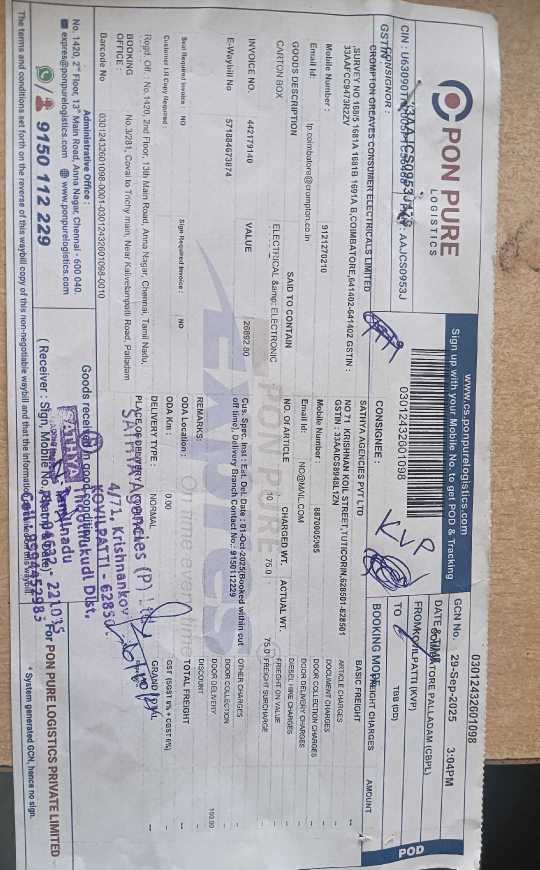 PON PURE
LOGISTICS
www.cs.ponpurelogistics.com
Sign up with your Mobile No. to get POD & Tracking
POD
03012432601098
GCN No. 03012432601098
DATE & TIME 29-Sep-2025 3:04PM
FROM COIMBATORE PALLADAM (CBPL)
TO KOVILPATTI (KVP)
BOOKING MODE TBB (DD)
CONSIGNOR :
CROMPTON GREAVES CONSUMER ELECTRICALS LIMITED
,SURVEY NO 168/5 1681A 1681B 1691A B,COIMBATORE,641402-641402 GSTIN :
33AAFCC9473R2ZV
Mobile Number : 9121270210
Email Id: tp.coimbatore@crompton.co.in
CONSIGNEE:
KVP
SATHYA AGENCIES PVT LTD
NO 71 KRISHNAN KOIL STREET,TUTICORIN,628501-628501
GSTIN : 33AAICS8948L1ZN
Mobile Number : 8870005065
Email Id: NO@MAIL.COM
GOODS DESCRIPTION SAID TO CONTAIN NO. OF ARTICLE CHARGED WT. ACTUAL WT.
CARTON BOX ELECTRICAL &amp; ELECTRONIC 10 75.0 75.0
INVOICE NO. 442179140 VALUE 26892.80
E-Waybill No 571884673874
Cus. Spec. Inst : Est. Del. Date : 01-Oct-2025(Booked within cut
off time), Delivery Branch Contact No.: 9150112229
REMARKS:
Seal Required Invoice : NO Sign Required Invoice : NO
ODA Location :
Customer LR Copy Required
ODA Km : 0.00
DELIVERY TYPE : NORMAL
Regd. Off. : No.1420, 2nd Floor, 13th Main Road, Anna Nagar, Chennai, Tamil Nadu,
PLACE OF DELIVERY
BOOKING
OFFICE :
No.3/281, Covai to Trichy main, Near Kalivelampatti Road, Palladam
Barcode No 03012432601098-0001-03012432601098-0010
FREIGHT CHARGES AMOUNT
BASIC FREIGHT **
ARTICLE CHARGES
DOCUMENT CHARGES
DOOR COLLECTION CHARGES
DOOR DELIVERY CHARGES
DIESEL HIKE CHARGES
FREIGHT ON VALUE
FREIGHT SURCHARGE
OTHER CHARGES
DOOR COLLECTION
DOOR DELIVERY 100.00
DISCOUNT
TOTAL FREIGHT
GRAND TOTAL
Administrative Office :
No. 1420, 2nd Floor, 13th Main Road, Anna Nagar, Chennai - 600 040.
expres@ponpurelogistics.com www.ponpurelogistics.com
9150 112 229
Goods received in good condition
( Receiver : Sign, Mobile No.
Agencies (P) Ltd
4/71, Krishnankov
KOVILPATTI
Thoothukudi Dist.
Tamilnadu
SATHYA
For PON PURE LOGISTICS PRIVATE LIMITED
* System generated GCN, hence no sign.
The terms and conditions set forth on the reverse of this waybill copy of this non-negotiable waybill and that the information